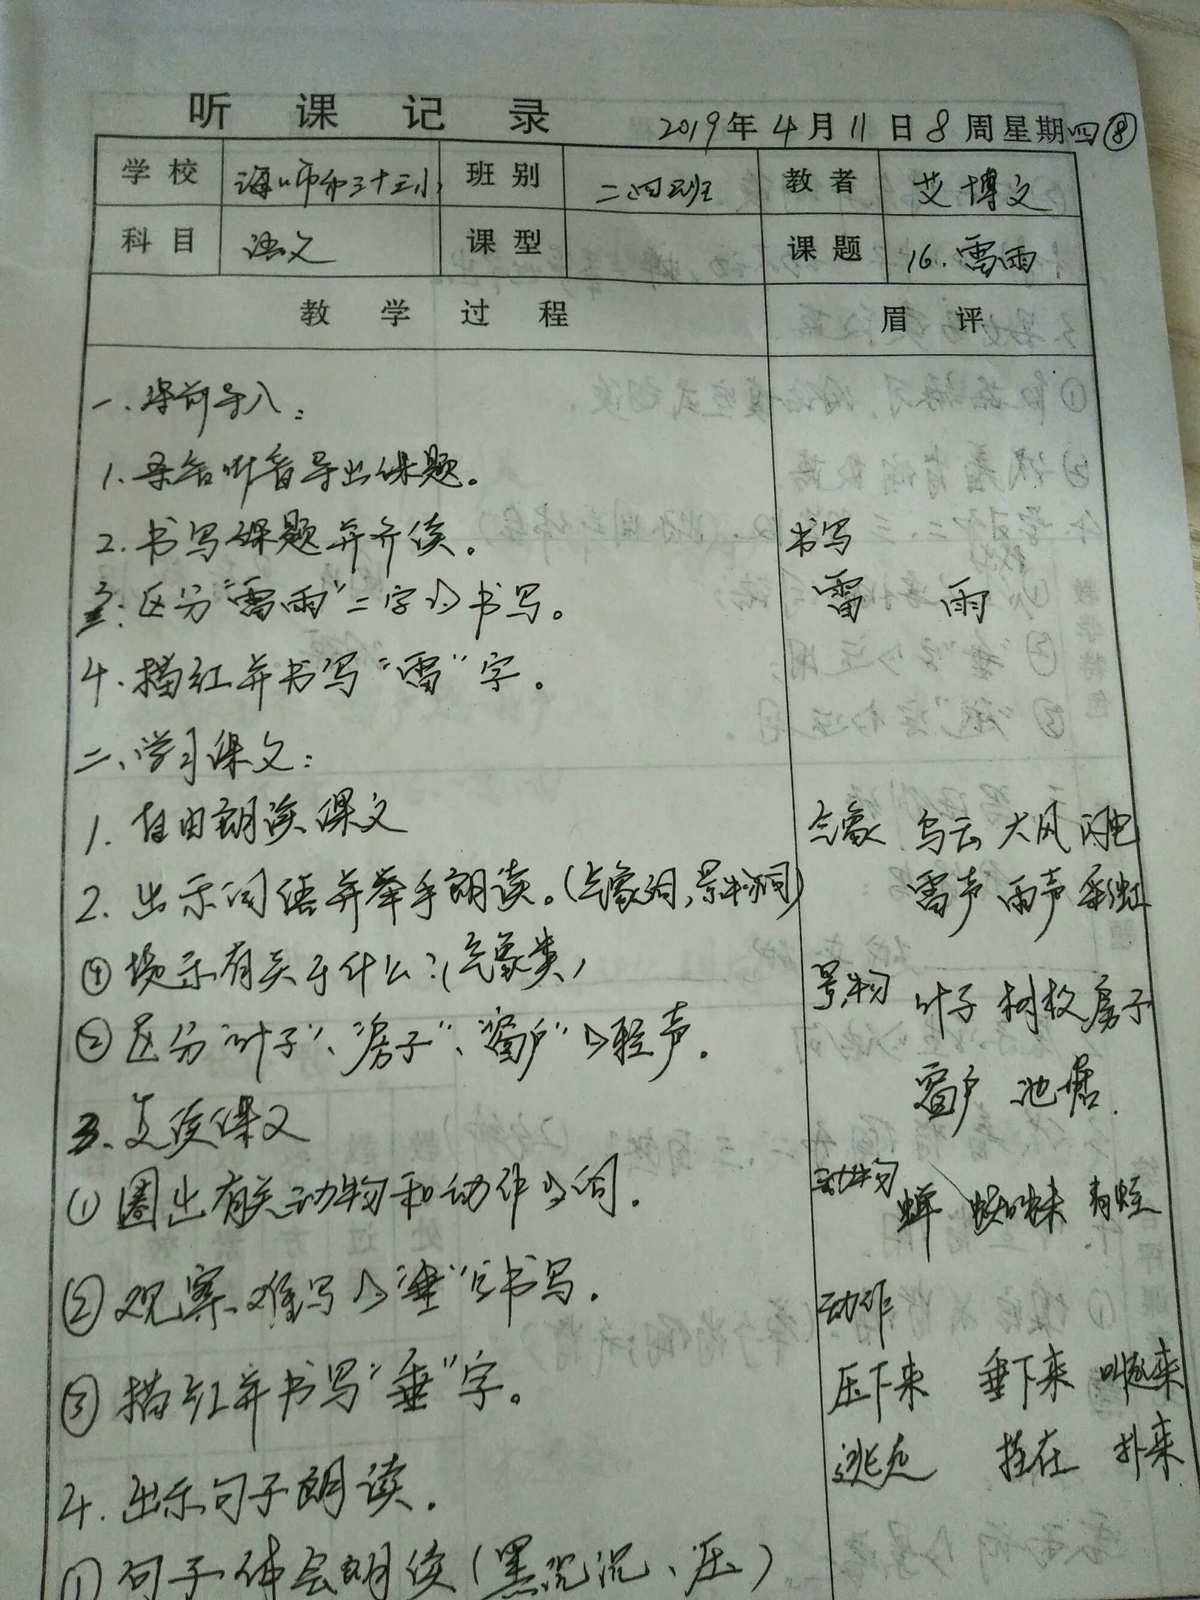 听课记录 2019年4月11日8周星期四⑧
学校 海口市第三十三小 班别 二(四)班 教者 艾博文
科目 语文 课型 课题 16.雷雨
教学过程 眉评
一、课前导入：
1.录音听音导出课题。
2.书写课题并齐读。 书写
3.区分“雷雨”二字的书写。 雷 雨
4.描红并书写“雷”字。
二、学习课文：
1.自由朗读课文 气象 乌云 大风 闪电
2.出示词语并举手朗读。(气象词,景物词) 雷声 雨声 彩虹
有关于什么?(气象类) 景物 叶子 树枝 房子
②区分“叶子”、“房子”、“窗户”的轻声。 窗户 池塘
3.复读课文
①圈出有关动物和动作的词。 动物 蝉 蜘蛛 青蛙
②观察难写的“垂”字书写。 动作
③描红并书写“垂”字。 压下来 垂下来 叫起来
4.出示句子朗读。 逃走 挂在 扑来
①句子体会朗读(黑沉沉、压)